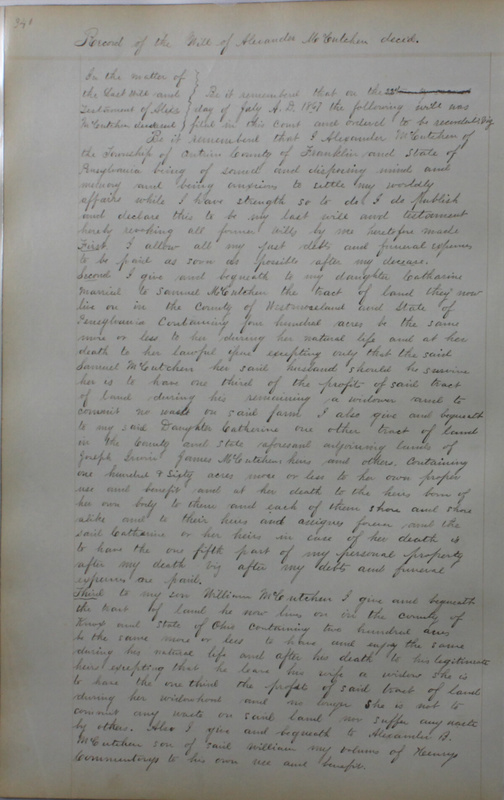 340
Record of the Will of Alexander McCutchen decsd.
In the matter of
the Last Will and } Be it remembered that on the
Testament of Alexr } day of July A. D. 1847 the following will was
McCutchen deceased } filed in this court and ordered to be recorded Viz
Be it remembered that I Alexander McCutchen of
the Township of Antrim County of Franklin and State of
Pensylvania being of sound and disposing mind and
memory and being anxious to settle my worldly
affairs while I have strength so to do I do publish
and declare this to be my last will and testament
hereby revoking all former wills by me heretofore made
First. I allow all my just debts and funeral expenses
to be paid as soon as possible after my decease.
Second I give and bequeath to my daughter Catharine
married to Samuel McCutchen the tract of land they now
live on in the County of Westmoreland and State of
Pensylvania Containing four hundred acres be the same
more or less to her during her natural life and at her
death to her lawful issue excepting only that the said
Samuel McCutchen her said husband should he survive
her is to have one third of the profits of said tract
of land during his remaining a widower and to
commit no waste on said farm I also give and bequeath
to my said Daughter Catherine one other tract of land
in the County and State aforesaid adjoining lands of
Joseph Irwin James McCutchens heirs and others. Containing
one hundred & Sixty acres more or less to her own proper
use and benefit and at her death to the heirs born of
her own body to them and each of them share and share
alike and to their heirs and assignes forever and the
said Catharine or her heirs in case of her death is
to have the one fifth part of my personal property
after my death viz after my debts and funeral
expenses are paid.
Third to my son William McCutchen I give and bequeath
the tract of land he now lives on in the county of
Knox and State of Ohio containing two hundred acres
be the same more or less to have and enjoy the same
during his natural life and after his death to his legitimate
heirs excepting that he leave his wife a widow she is
to have the one third the profit of said tract of land
during her widowhood and no longer she is not to
commit any waste on said land nor suffer any waste
by others. Also I give and bequeath to Alexander B.
McCutchen son of said William my volume of Henrys
Commentarys to his own use and benefit.